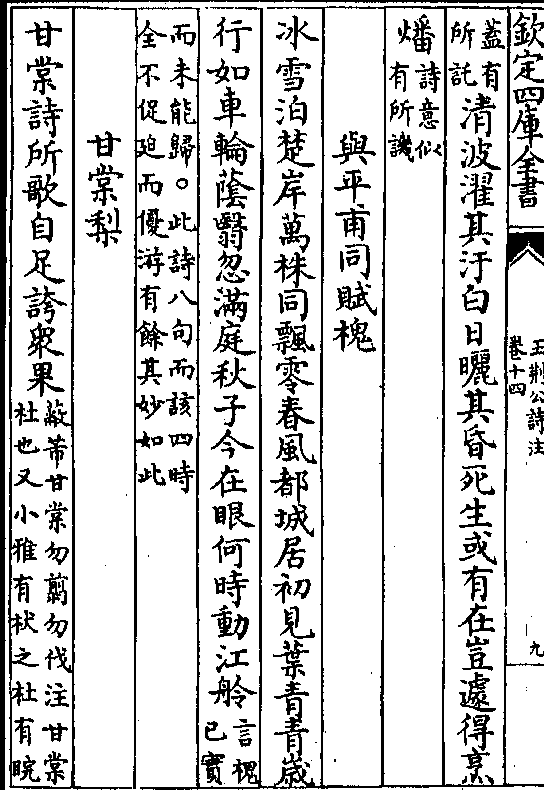 欽定四庫全書
王荆公詩注
卷十四
九
蓋有
所託
清波濯其汙白日曬其昏死生或有在豈遽得烹
燔
詩意似
有所譏
與平甫同賦槐
冰雪泊楚岸萬株同飄零春風都城居初見葉青青歲
行如車輪蔭翳忽滿庭秋子今在眼何時動江舲
言槐
已實
而未能歸。此詩八句而該四時
全不促迫而優游有餘其妙如此
甘棠梨
甘棠詩所歌自足誇衆果
蔽芾甘棠勿翦勿伐注甘棠
杜也又小雅有杕之杜有睆